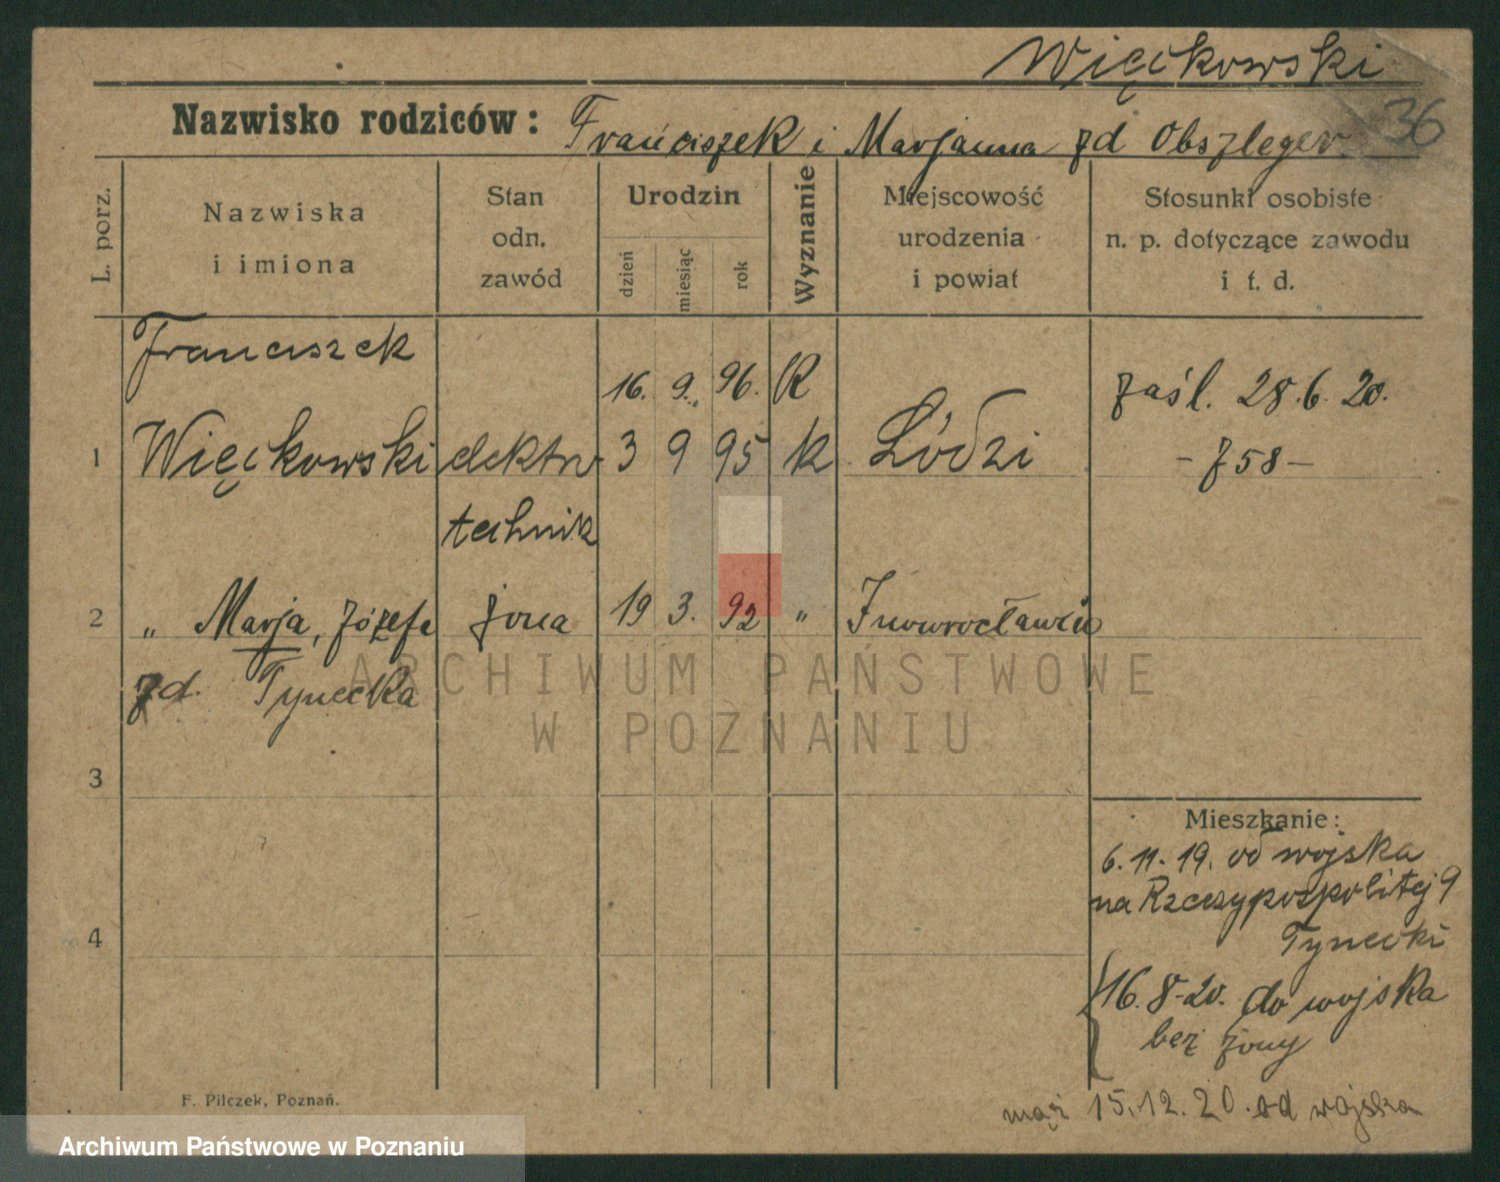 Więckowski
36
Nazwisko rodziców: Franciszek i Marjanna zd Obszleger.
L. porz.
Nazwiska
i imiona
Stan
odn.
zawód
Urodzin
dzień
miesiąc
rok
Wyznanie
Miejscowość
urodzenia
i powiat
Stosunki osobiste
n. p. dotyczące zawodu
i t. d.
Franciszek
16. 9. 96. R
zaśl. 28.6.20.
1 Więckowski elektro 3 9 95 k Łódzi
- 758 -
technik
2 " Marja, Józefa żona 19 3. 92 " Inowrocławiu
zd. Tynecka
ARCHIWUM PAŃSTWOWE
W POZNANIU
3
Mieszkanie:
6. 11. 19. od wojska
na Rzeczypospolitej 9
Tynecki
4
16. 8-20. do wojska
bez żony
F. Pilczek, Poznań.
mąż 15.12.20. od wojska
Archiwum Państwowe w Poznaniu